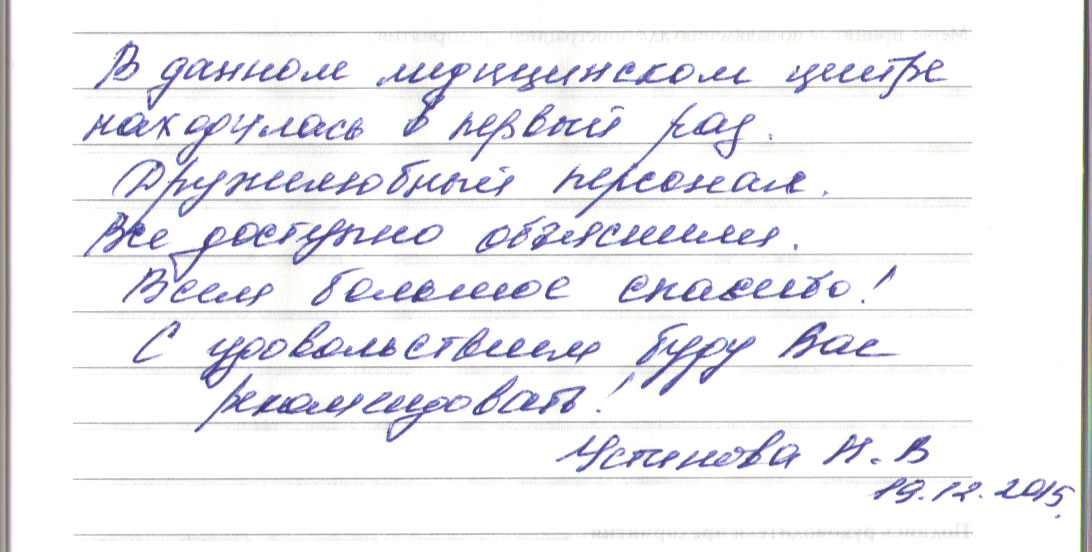 В данном медицинском центре
находилась в первый раз.
Дружелюбный персонал.
Все доступно объяснили.
Всем большое спасибо!
С удовольствием буду Вас
рекомендовать!
Устинова Н. В
19.12.2015.